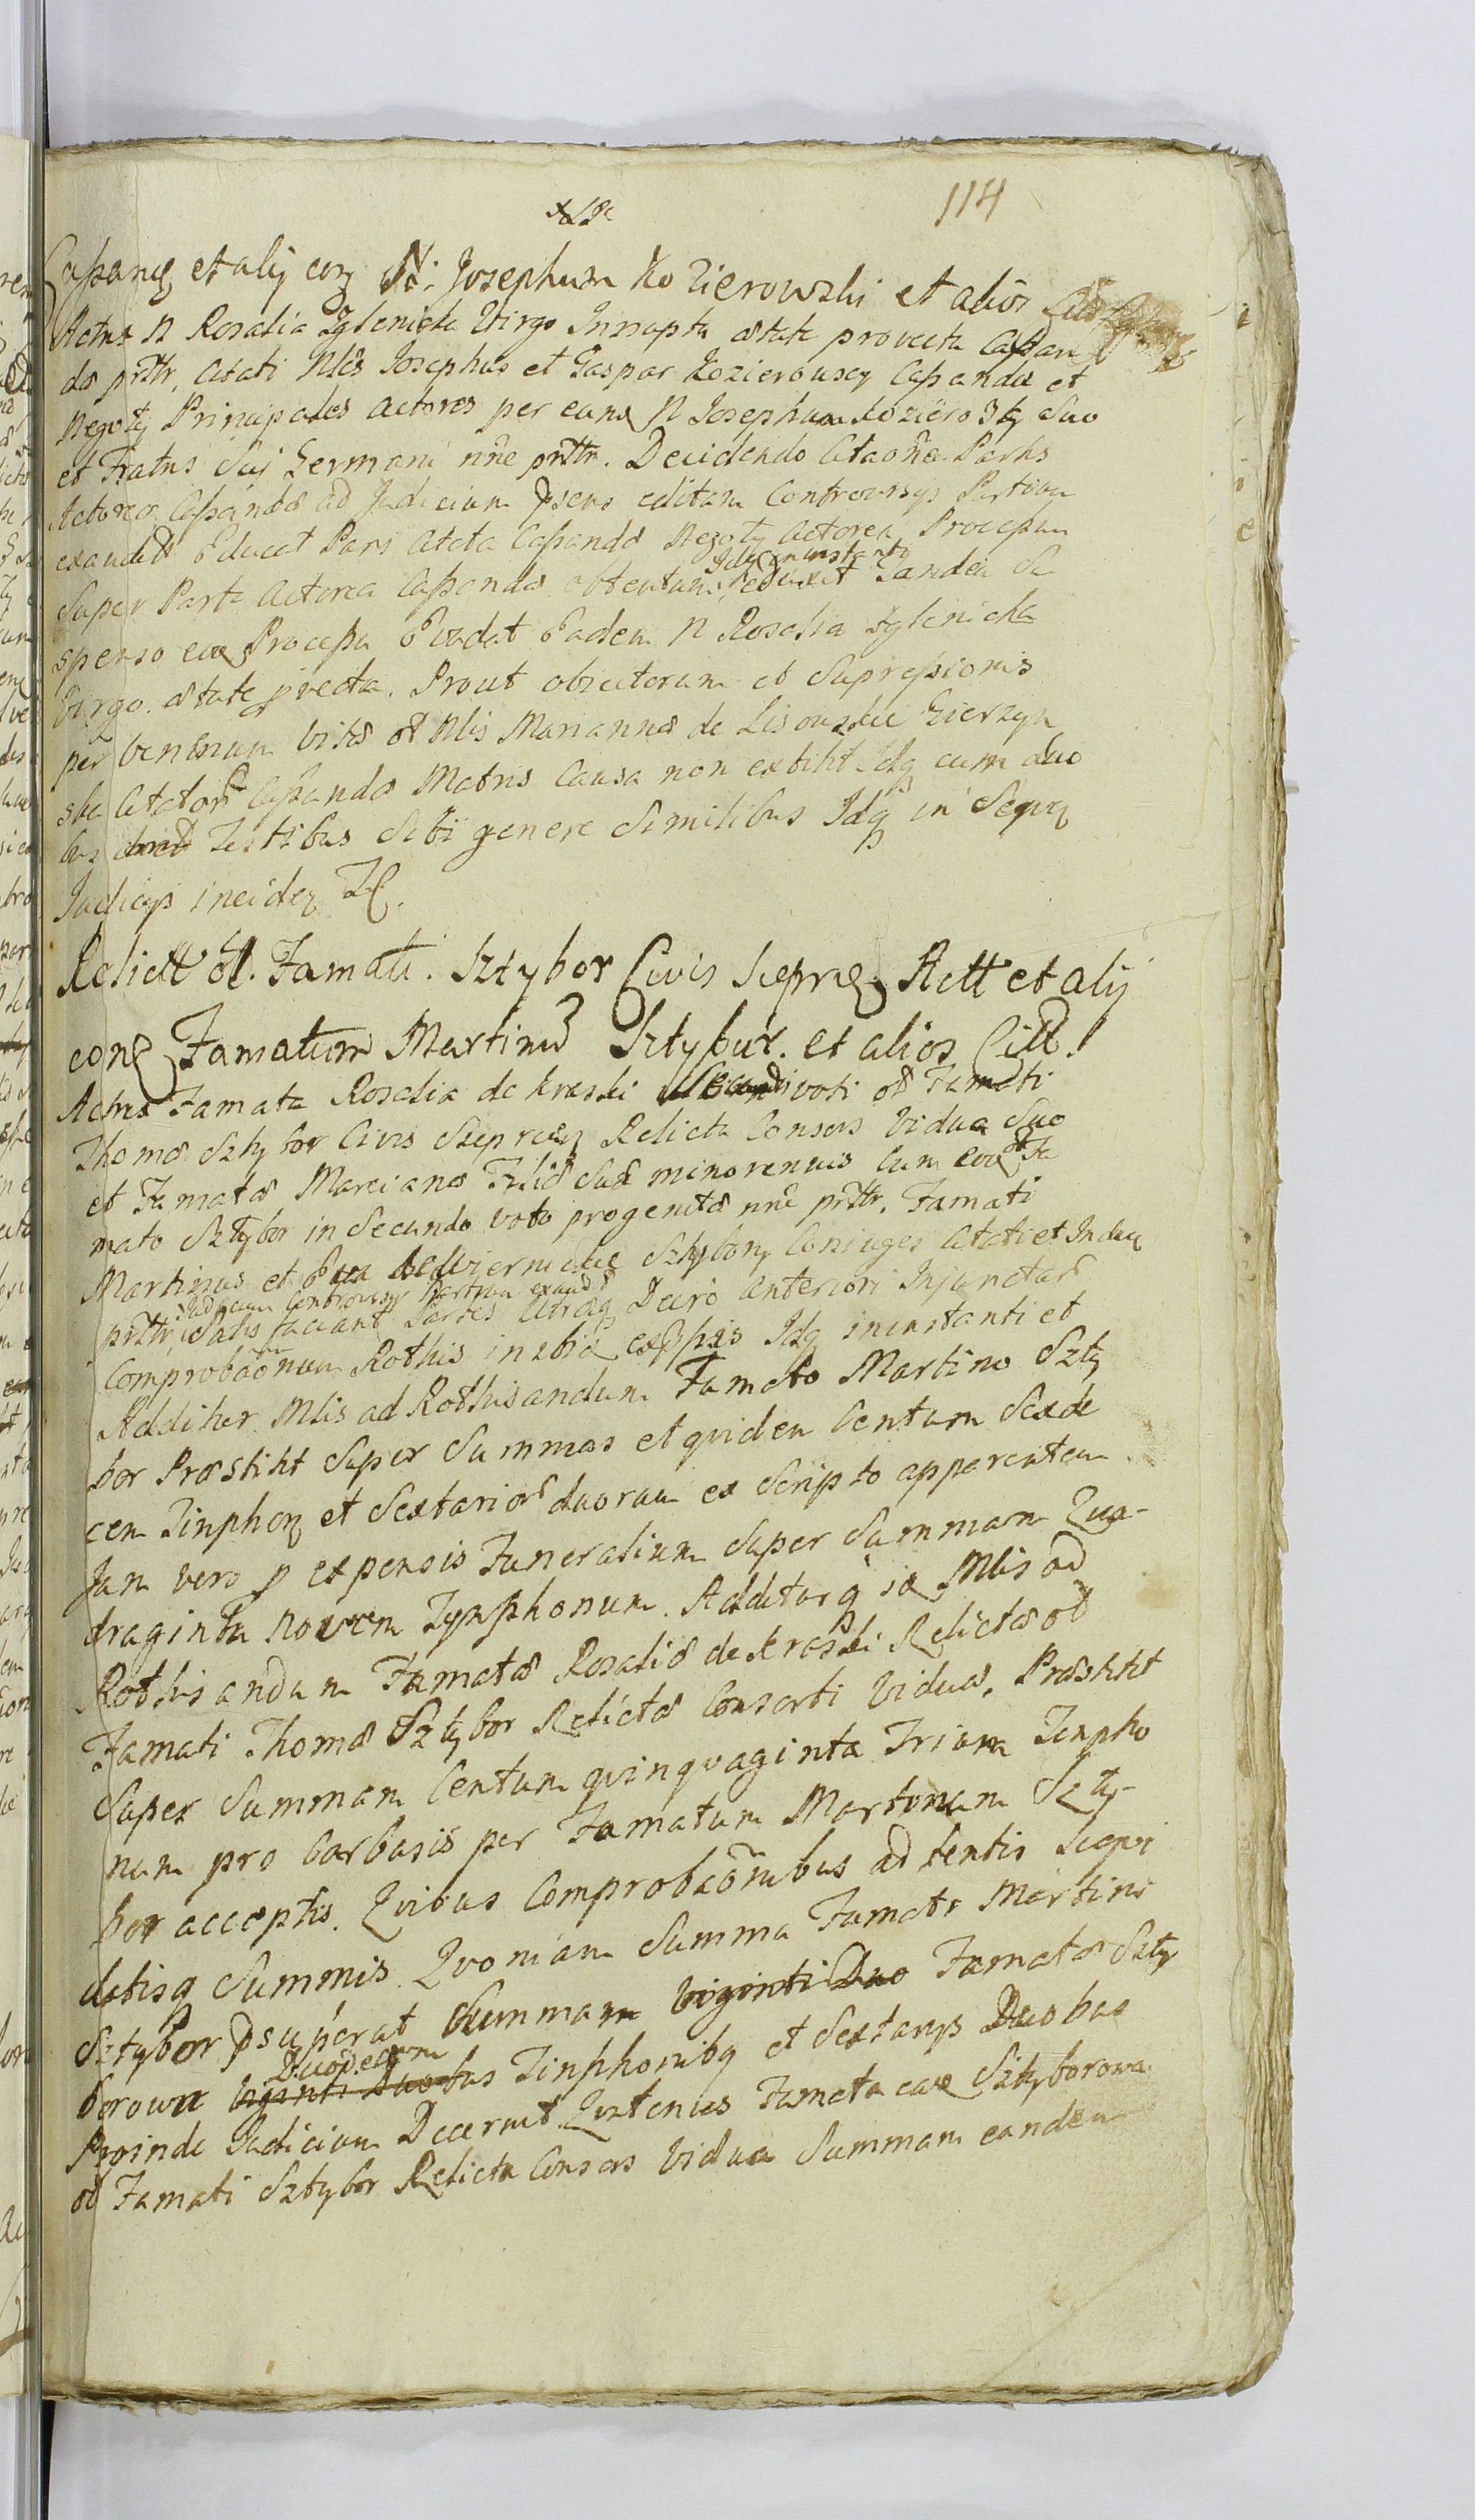 114
Caſsans et alij con N: Josephum Kozierowski et alios
Actrix N Rosalia Zglenicka Virgo Innupta ætate provecta Caſsan
dæ prttr, Citati Nles Josephus et Gaspar Kozierowscy Caſsandæ et
Negotij Principales Actores per eund N Josephum Kozierowski Suo
et Fratris Sui Germani nne prttr. Decidendo Citaōnem Partis
Actoreæ Caſsandæ ad Judicium pñens editam Controversijs Partium
exauditis Educat Pars Citata Caſsandæ Negotij Actorea Proceſsum
Super Parte Actorea Caſsandæ obtentum, Idq in instanti eduxit Tandem Su
spenso eod Proceſsu Evadat Eadem N Rosalia Zglenicka
Virgo ætate pvecta. Prout obiectorum et Supreſsionis
per Venenum vitæ ol Nlis Mariannæ de Lisowskie Gierzyn
ska Citator Caſsandæ Matris Causa non extitit Idq cum duo
bus Testibus Sibi genere Similibus Idq in Seqve
Judicijs inciden
Relictt ol. Famati. Sztybor Civis Sieprcen Actt et alij
con Famatum Martinum Sztybur. et alios Citt.
Actrix Famata Rosalia de Kraski Secundi voti ol Famati
Thomæ Sztybor Civis Sieprcen Relicta Consors Vidua Suo
et Famatæ Marcianæ Filiæ Suæ minorennis cum eod ol Fa
mato Sztybor in Secundo voto progenitæ nne prttr. Famati
Martinus et Eva Sztybory Coniuges Citati et Induc
prttr, Judicium Controversijs Partium exauditis Satis faciant Partes Utræq Decro Anteriori Injunctar
Comprobaōnum Rothis in ibi expſsis Idq in instanti et
Additur Mlis ad Rothisandum Famato Martino Szty
bor Præstitit Super Summas et quidem Centum Sexde
cem Tinphon et Sextarior duorum ex Scripto apparentem
Jam vero p expensis Funeralium Super Summam Qua-
draginta novem Tynphonum. Additurq ie Mlis ad
Rothisandum Famatæ Rosaliæ de Kraski Relictæ ol
Famati Thomæ Sztybor Relictæ Consorti Viduæ, Præstitit
Super Summam Centum quinquaginta Trium Tinpho
num pro barbasis per Famatum Martinum Szty-
bor acceptis. Quibus Comprobaōnibus ad sentis Sieqvi
datisq Summis Quoniam Summa Famati Martini
Sztybor psuperat Summam Viginti Duo Famatæ Szty
borowa Viginti Duobus Duodecim Tinphonibq et Sextarijs Duobus
Proinde Judicium Decernit Quatenus Famata ead Sztyborowa
ol Famati Sztybor Relicta Consors Vidua Summam eandem